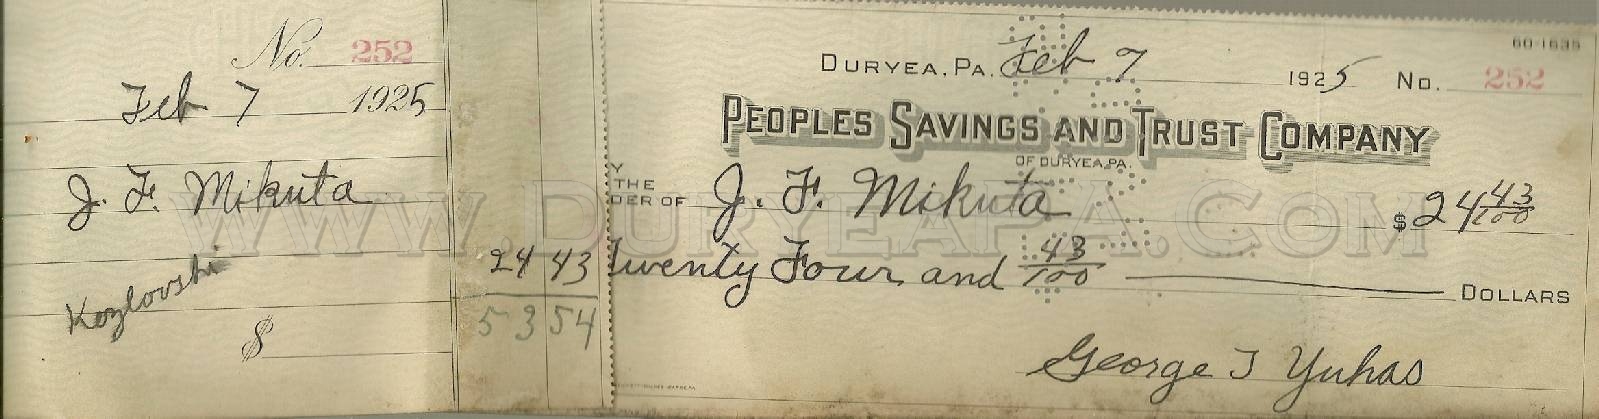 No. 252
Feb 7 1925
J. F. Mikuta
Kozlovski
$
24 43
53 54
60-1635
DURYEA, PA. Feb 7 1925 No. 252
PEOPLES SAVINGS AND TRUST COMPANY
OF DURYEA, PA.
Y
THE
DER OF J. F. Mikuta $24 43/100
Twenty Four and 43/100 DOLLARS
George J Yuhas
WWW.DURYEAPA.COM